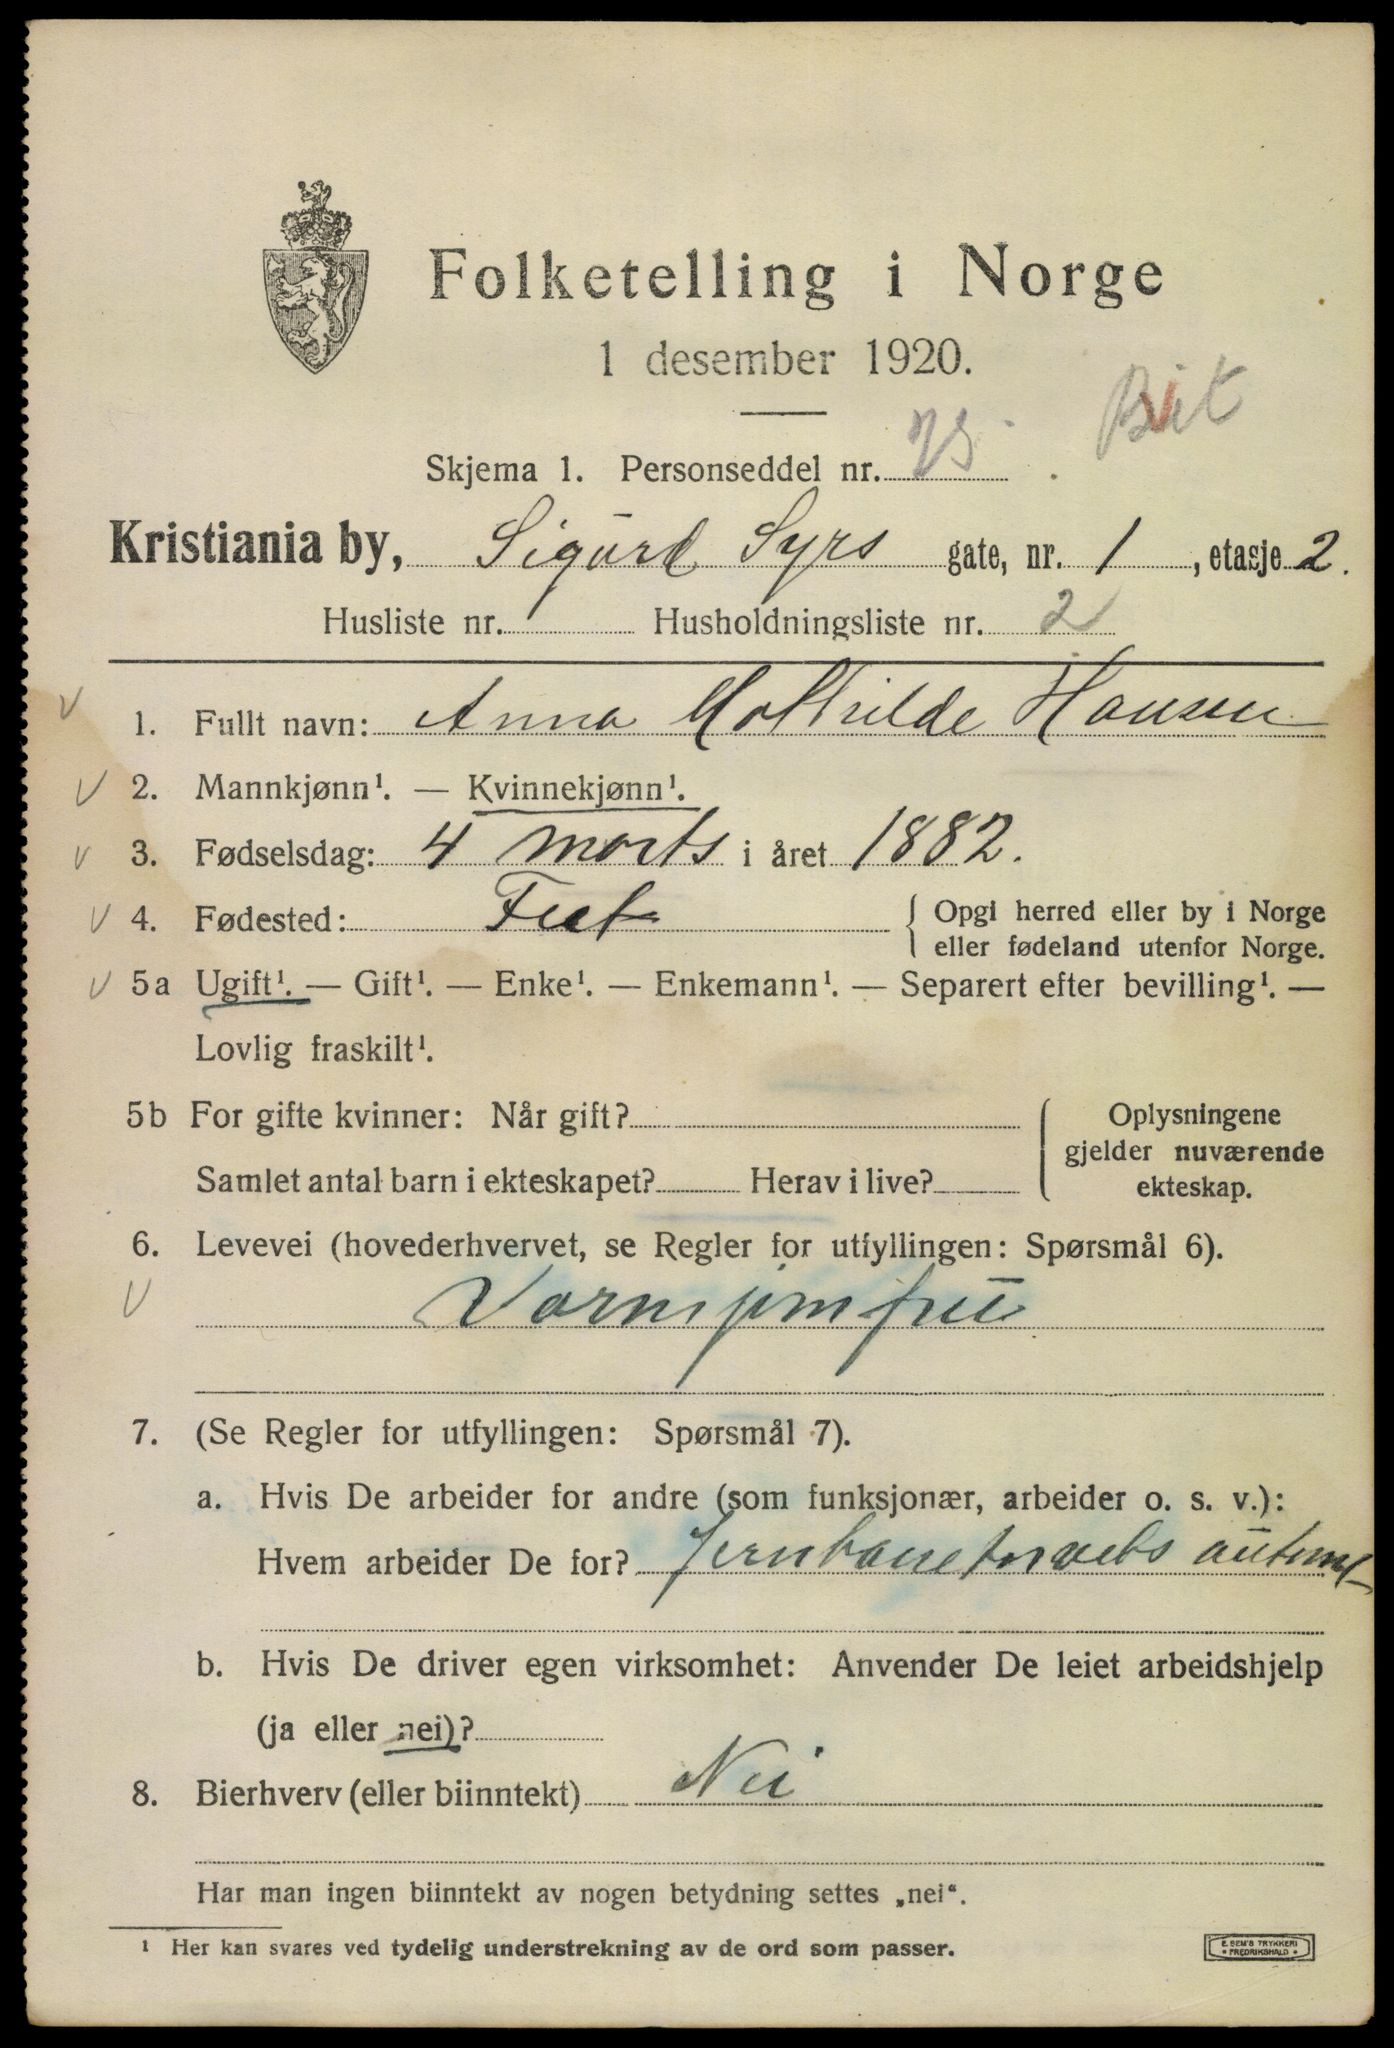 Folketelling i Norge
1 desember 1920.
Skjema 1. Personseddel nr.
Kristiania by, Sigurd Syrs gate, nr. 1, etasje 2.
Husliste nr. Husholdningsliste nr. 2
1. Fullt navn: Anna Mathilde Hansen
2. Mannkjønn¹. — Kvinnekjønn¹.
3. Fødselsdag: 4 marts i året 1882.
4. Fødested: Fet { Opgi herred eller by i Norge
eller fødeland utenfor Norge.
5a Ugift¹. — Gift¹. — Enke¹. — Enkemann¹. — Separert efter bevilling¹. —
Lovlig fraskilt¹.
5b For gifte kvinner: Når gift?
Samlet antal barn i ekteskapet? Herav i live?
{ Oplysningene
gjelder nuværende
ekteskap.
6. Levevei (hovederhvervet, se Regler for utfyllingen: Spørsmål 6).
Varmjomfru
7. (Se Regler for utfyllingen: Spørsmål 7).
a. Hvis De arbeider for andre (som funksjonær, arbeider o. s. v.):
Hvem arbeider De for? Jernbanetorvets automat
b. Hvis De driver egen virksomhet: Anvender De leiet arbeidshjelp
(ja eller nei)?
8. Bierhverv (eller biinntekt) Nei
Har man ingen biinntekt av nogen betydning settes „nei“.
¹ Her kan svares ved tydelig understrekning av de ord som passer.
E. SEM'S TRYKKERI
FREDRIKSHALD